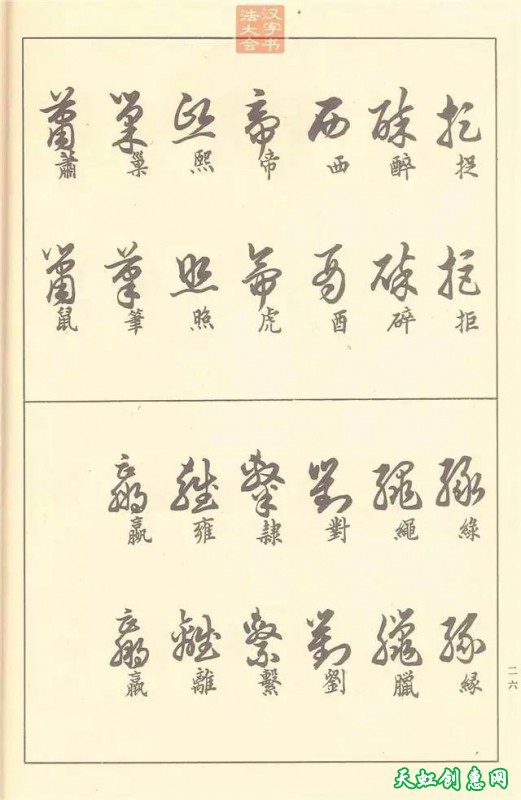 汉字书法大会
捉 醉 西 帝 熙 巢 蕭
拒 碎 酉 虎 照 筆 鼠
綠 繩 對 隸 雍 嬴
緣 臘 劉 繫 離 羸
二六
天虹创惠网